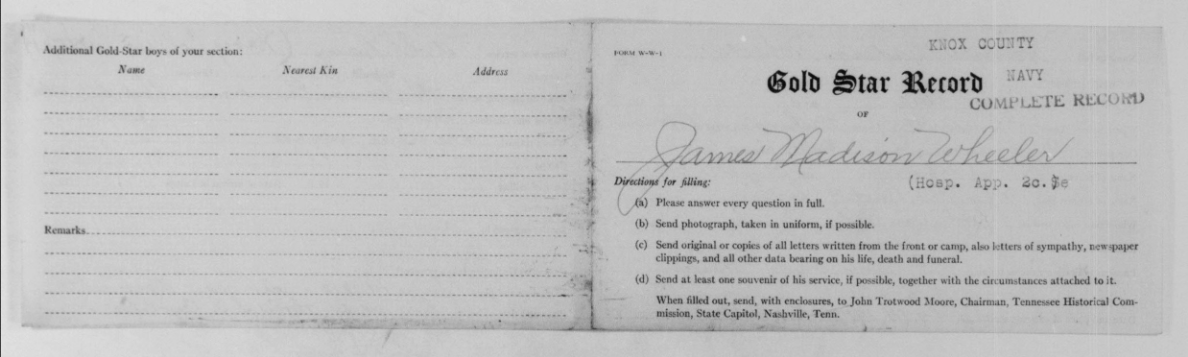 Additional Gold-Star boys of your section:
Name Nearest Kin Address
Remarks
FORM W-W-1
KNOX COUNTY
Gold Star Record NAVY
COMPLETE RECORD
OF
James Madison Wheeler
Directions for filling:
(Hosp. App. 2c.
(a) Please answer every question in full.
(b) Send photograph, taken in uniform, if possible.
(c) Send original or copies of all letters written from the front or camp, also letters of sympathy, newspaper
clippings, and all other data bearing on his life, death and funeral.
(d) Send at least one souvenir of his service, if possible, together with the circumstances attached to it.
When filled out, send, with enclosures, to John Trotwood Moore, Chairman, Tennessee Historical Com-
mission, State Capitol, Nashville, Tenn.